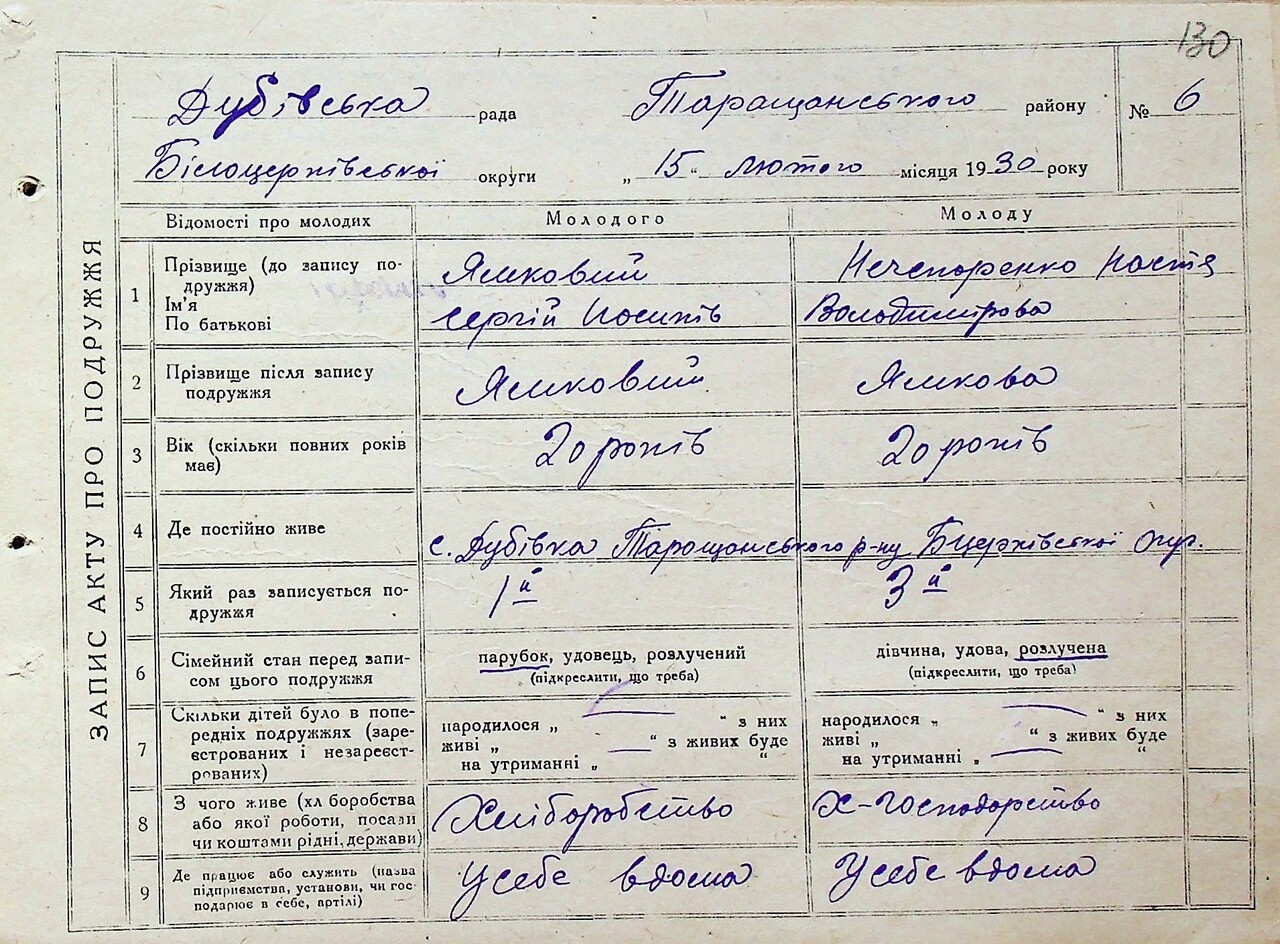 130
Дубівська рада Таращанського району № 6
Білоцерківської округи „ 15 “ лютого місяця 1930 року
Відомості про молодих Молодого Молоду
ЗАПИС АКТУ ПРО ПОДРУЖЖЯ
1 Прізвище (до запису по-
дружжя)
Ім'я
По батькові
Ямковий
Сергій Йосипів
Нечепоренко Настя
Володимирова
2 Прізвище після запису
подружжя
Ямковий Ямкова
3 Вік (скільки повних років
має)
20 років 20 років
4 Де постійно живе
с. Дубівка Таращанського р-ну Бцерківської Окр.
5 Який раз записується по-
дружжя
1й 3й
6 Сімейний стан перед запи-
сом цього подружжя
парубок, удовець, розлучений
(підкреслити, що треба)
дівчина, удова, розлучена
(підкреслити, що треба)
7 Скільки дітей було в попе-
редніх подружжях (заре-
єстрованих і незареєст-
рованих)
народилося „ — “ з них
живі „ — “ з живих буде
на утриманні „ “
народилося „ — “ з них
живі „ “ з живих буде
на утриманні „ — “
8 З чого живе (хл боробства
або якої роботи, посади
чи коштами рідні, держави)
Хліборобство Х-господарство
9 Де працює або служить (назва
підприємства, установи, чи гос-
подарює в себе, артілі)
У себе вдома У себе вдома